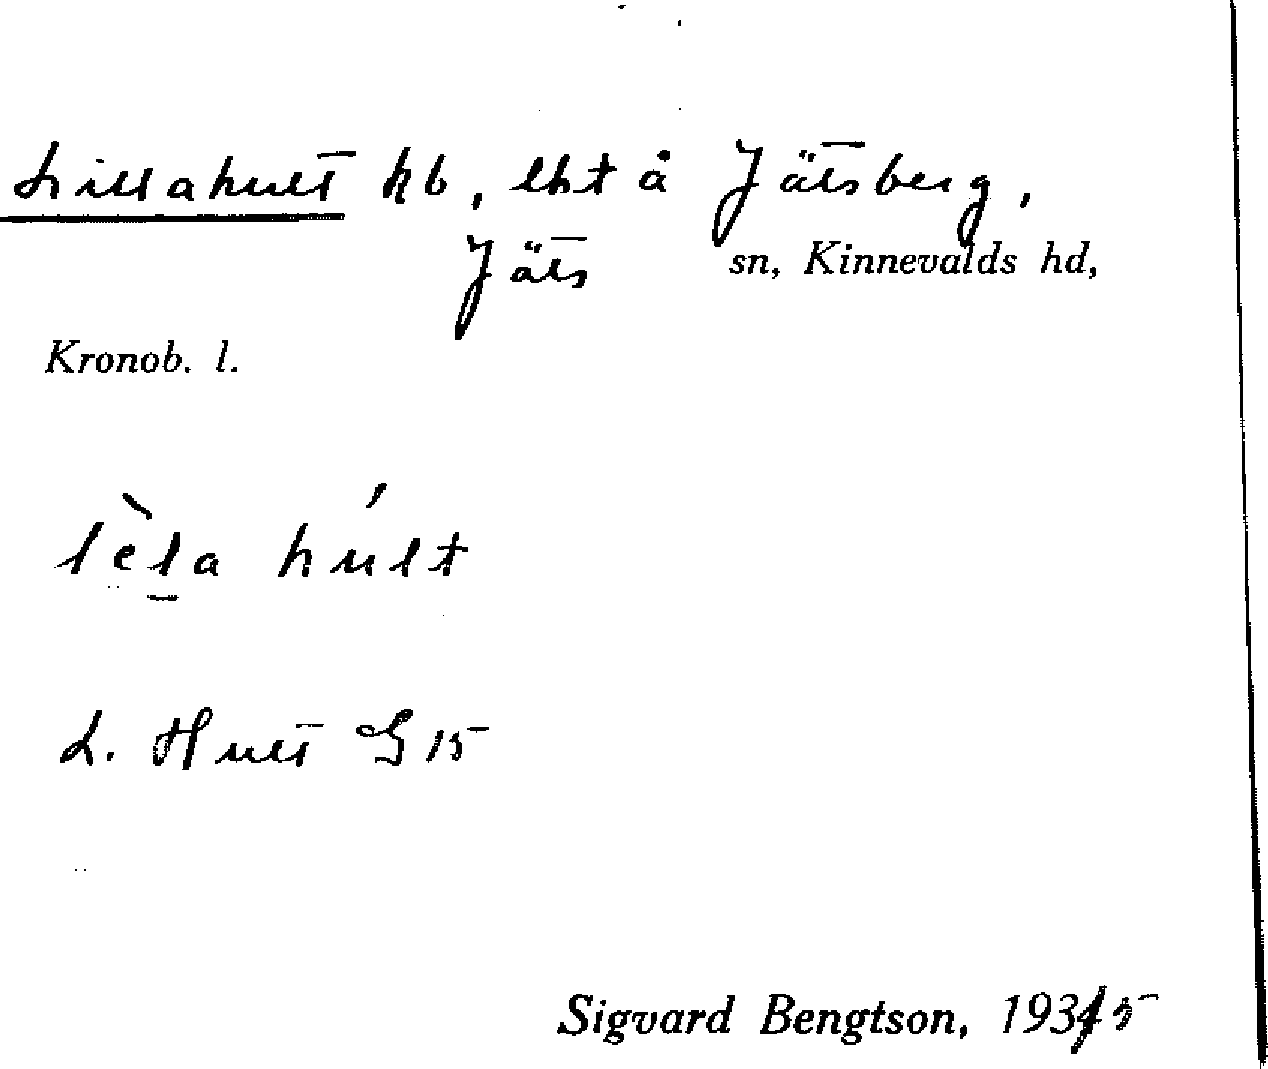 Lillahult hb, lht å Jätsberg,
Jäts sn, Kinnevalds hd,
Kronob. l.
lèl̠a húlt
L. Hult G 15
Sigvard Bengtson, 1935